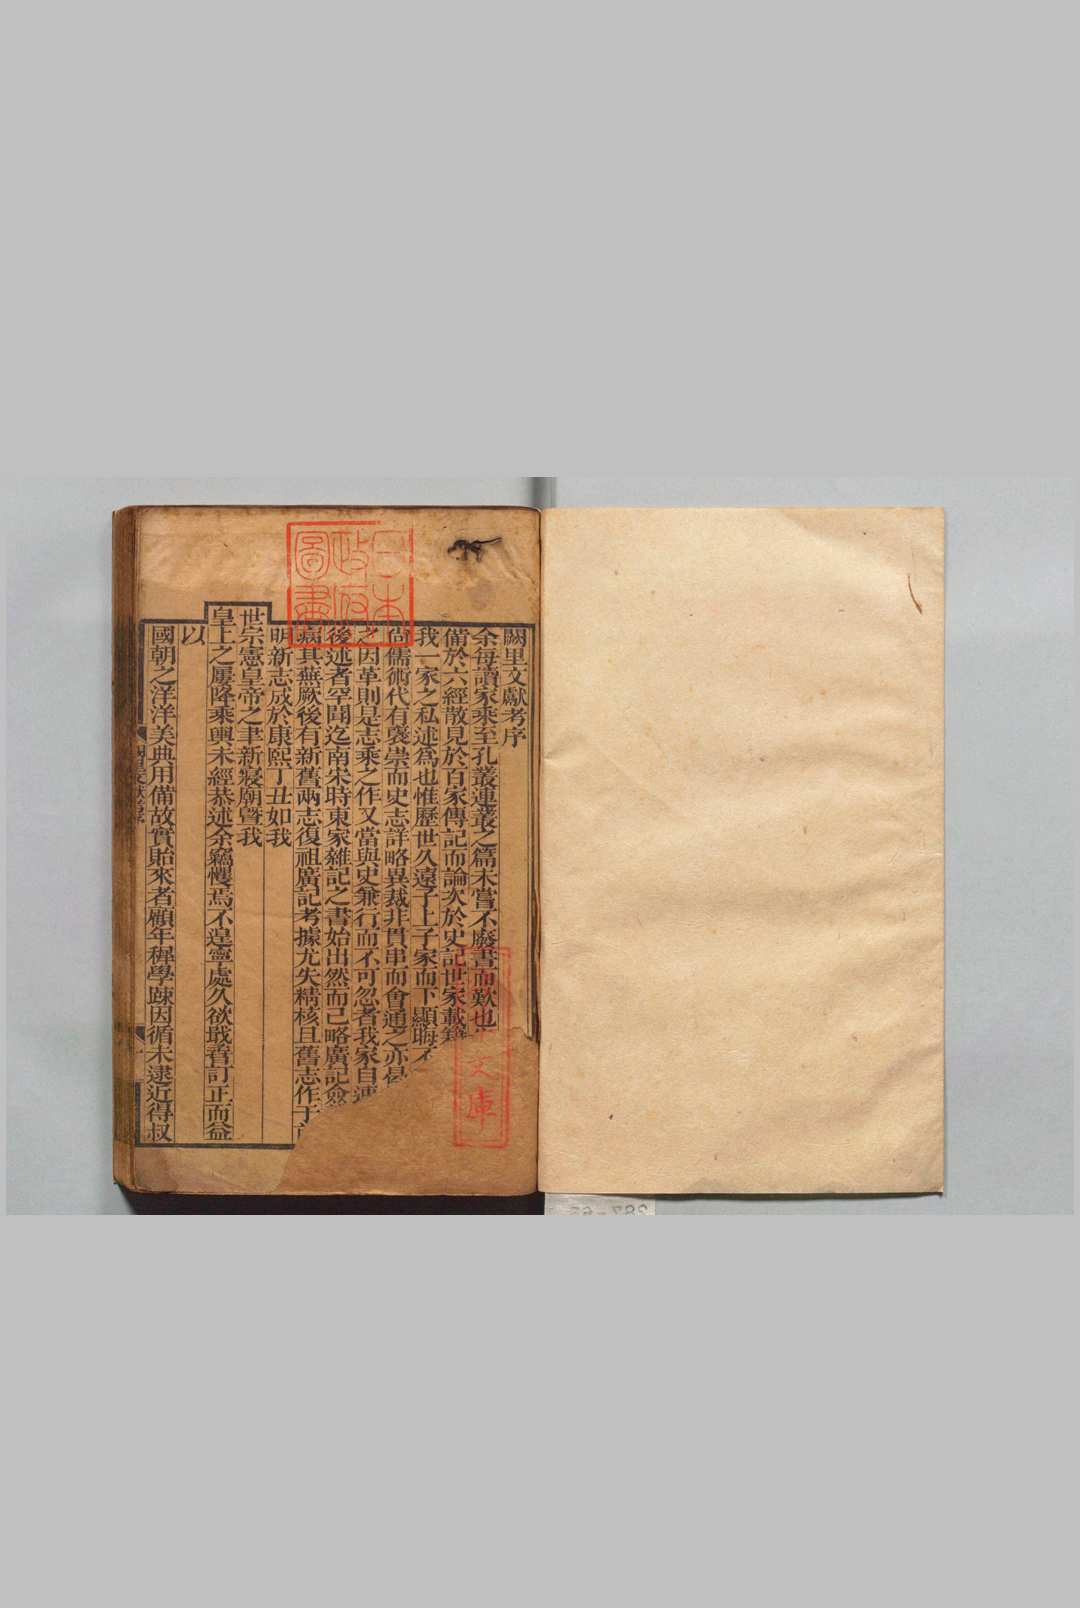 闕里文獻考序
余每讀家乘至孔叢連叢之篇未嘗不廢書而歎也
備於六經散見於百家傳記而論次於史記世家載籍
我一家之私述爲也惟歷世久遠子上子家而下顯晦不
尚儒術代有褒崇而史志詳略異裁非貫串而會通之亦
之因革則是志乘之作又當與史兼行而不可忽者我家自連
後述者罕聞迄南宋時東家雜記之書始出然而已略廣記
病其蕪厥後有新舊兩志復祖廣記考據尤失精核且舊志作于前
明新志成於康熙丁丑如我
世宗憲皇帝之聿新寢廟暨我
皇上之屢降乘輿未經恭述余竊懼焉不遑寧處久欲戢孴訂正而益
以
國朝之洋洋美典用備故實貽來者顧年穉學踈因循未逮近得叔
日本
政府
圖書
文庫